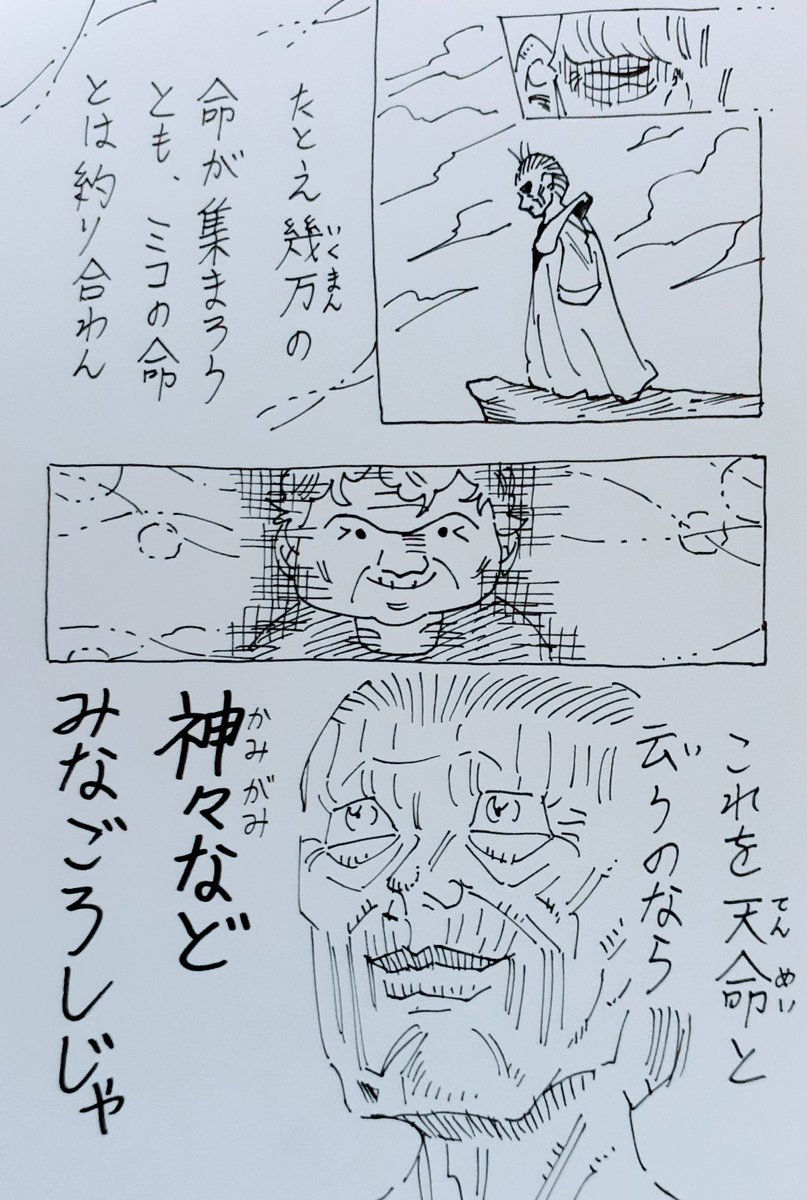 たとえ幾万の
命が集まろう
とも、ミコの命
とは釣り合わん
これを天命と
云うのなら
神々など
みなごろしじゃ